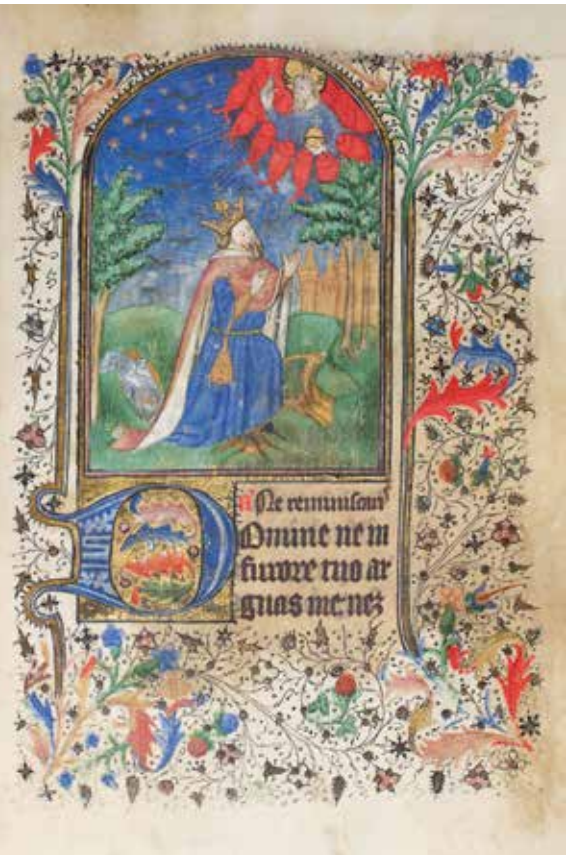 a Ne reminiscar
Domine ne in
furore tuo ar
guas me: nez